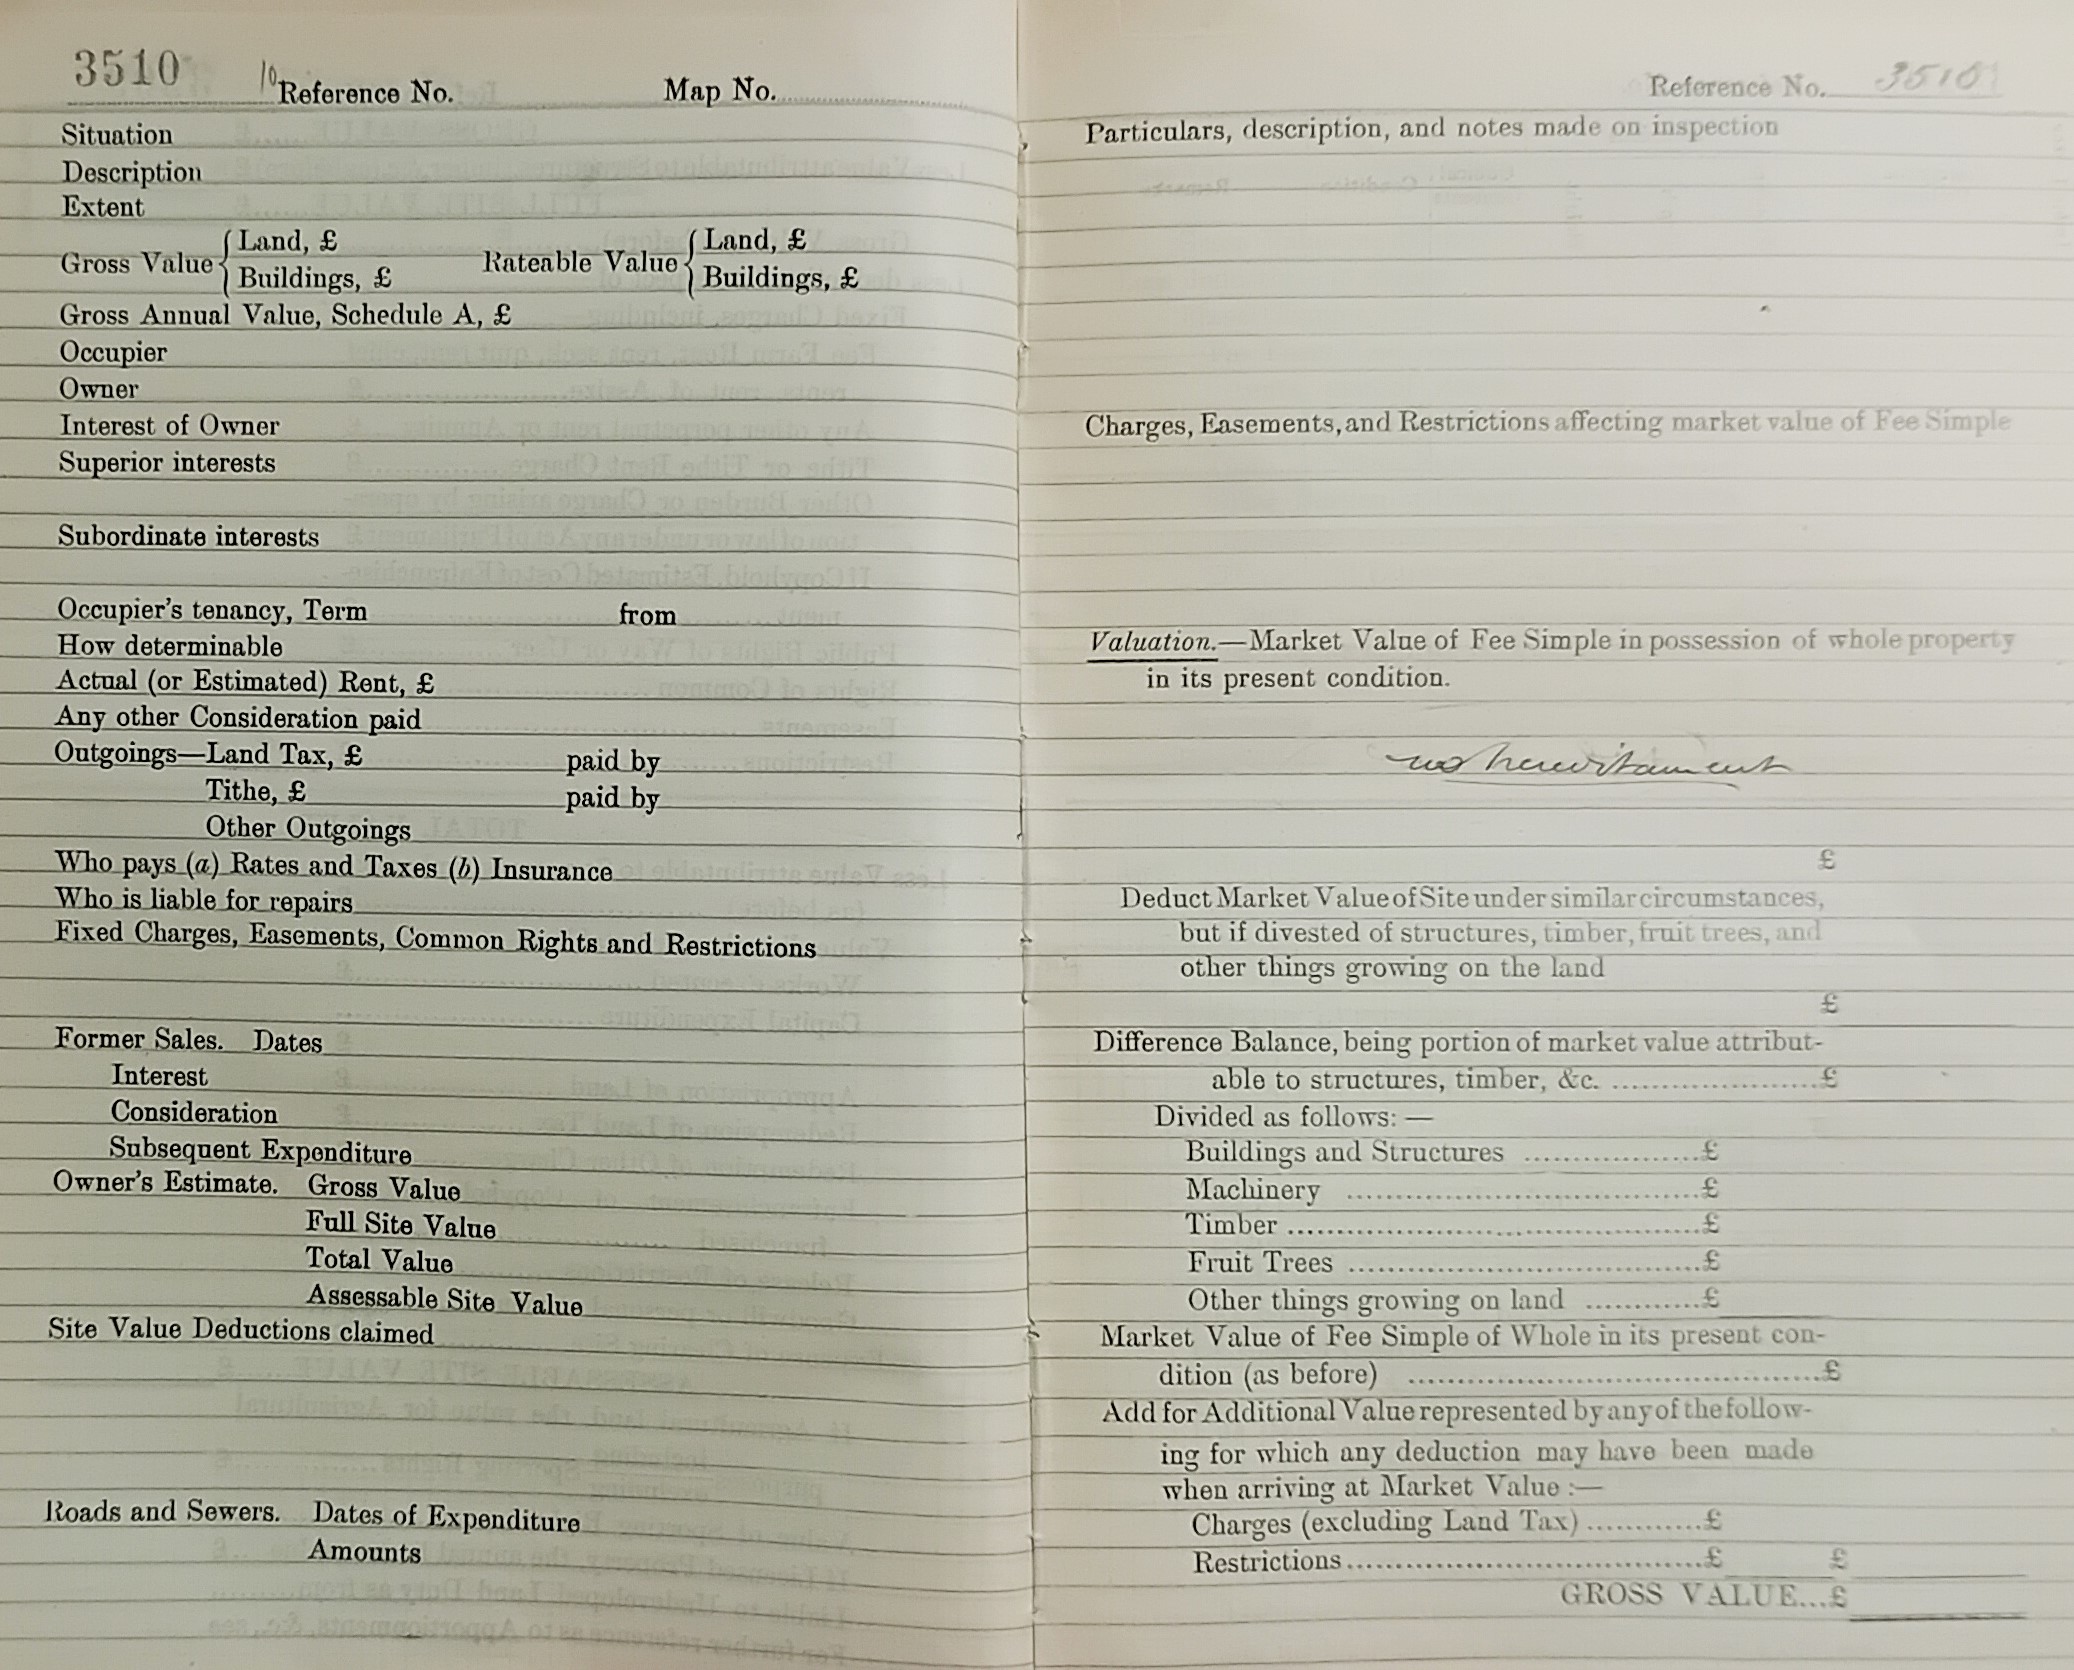 3510 10 Reference No. Map No.
Situation
Description
Extent
Gross Value { Land, £ Rateable Value { Land, £
Buildings, £ Buildings, £
Gross Annual Value, Schedule A, £
Occupier
Owner
Interest of Owner
Superior interests
Subordinate interests
Occupier's tenancy, Term from
How determinable
Actual (or Estimated) Rent, £
Any other Consideration paid
Outgoings—Land Tax, £ paid by
Tithe, £ paid by
Other Outgoings
Who pays (a) Rates and Taxes (b) Insurance
Who is liable for repairs
Fixed Charges, Easements, Common Rights and Restrictions
Former Sales. Dates
Interest
Consideration
Subsequent Expenditure
Owner's Estimate. Gross Value
Full Site Value
Total Value
Assessable Site Value
Site Value Deductions claimed
Roads and Sewers. Dates of Expenditure
Amounts
Reference No. 3510
Particulars, description, and notes made on inspection
Charges, Easements, and Restrictions affecting market value of Fee Simple
Valuation.—Market Value of Fee Simple in possession of whole property
in its present condition.
no hereditament
£
Deduct Market Value of Site under similar circumstances,
but if divested of structures, timber, fruit trees, and
other things growing on the land
£
Difference Balance, being portion of market value attribut-
able to structures, timber, &c. ........................ £
Divided as follows: —
Buildings and Structures .................. £
Machinery .................................... £
Timber .......................................... £
Fruit Trees .................................... £
Other things growing on land ............ £
Market Value of Fee Simple of Whole in its present con-
dition (as before) .......................................... £
Add for Additional Value represented by any of the follow-
ing for which any deduction may have been made
when arriving at Market Value :—
Charges (excluding Land Tax) ............ £
Restrictions .................................... £ £
GROSS VALUE... £